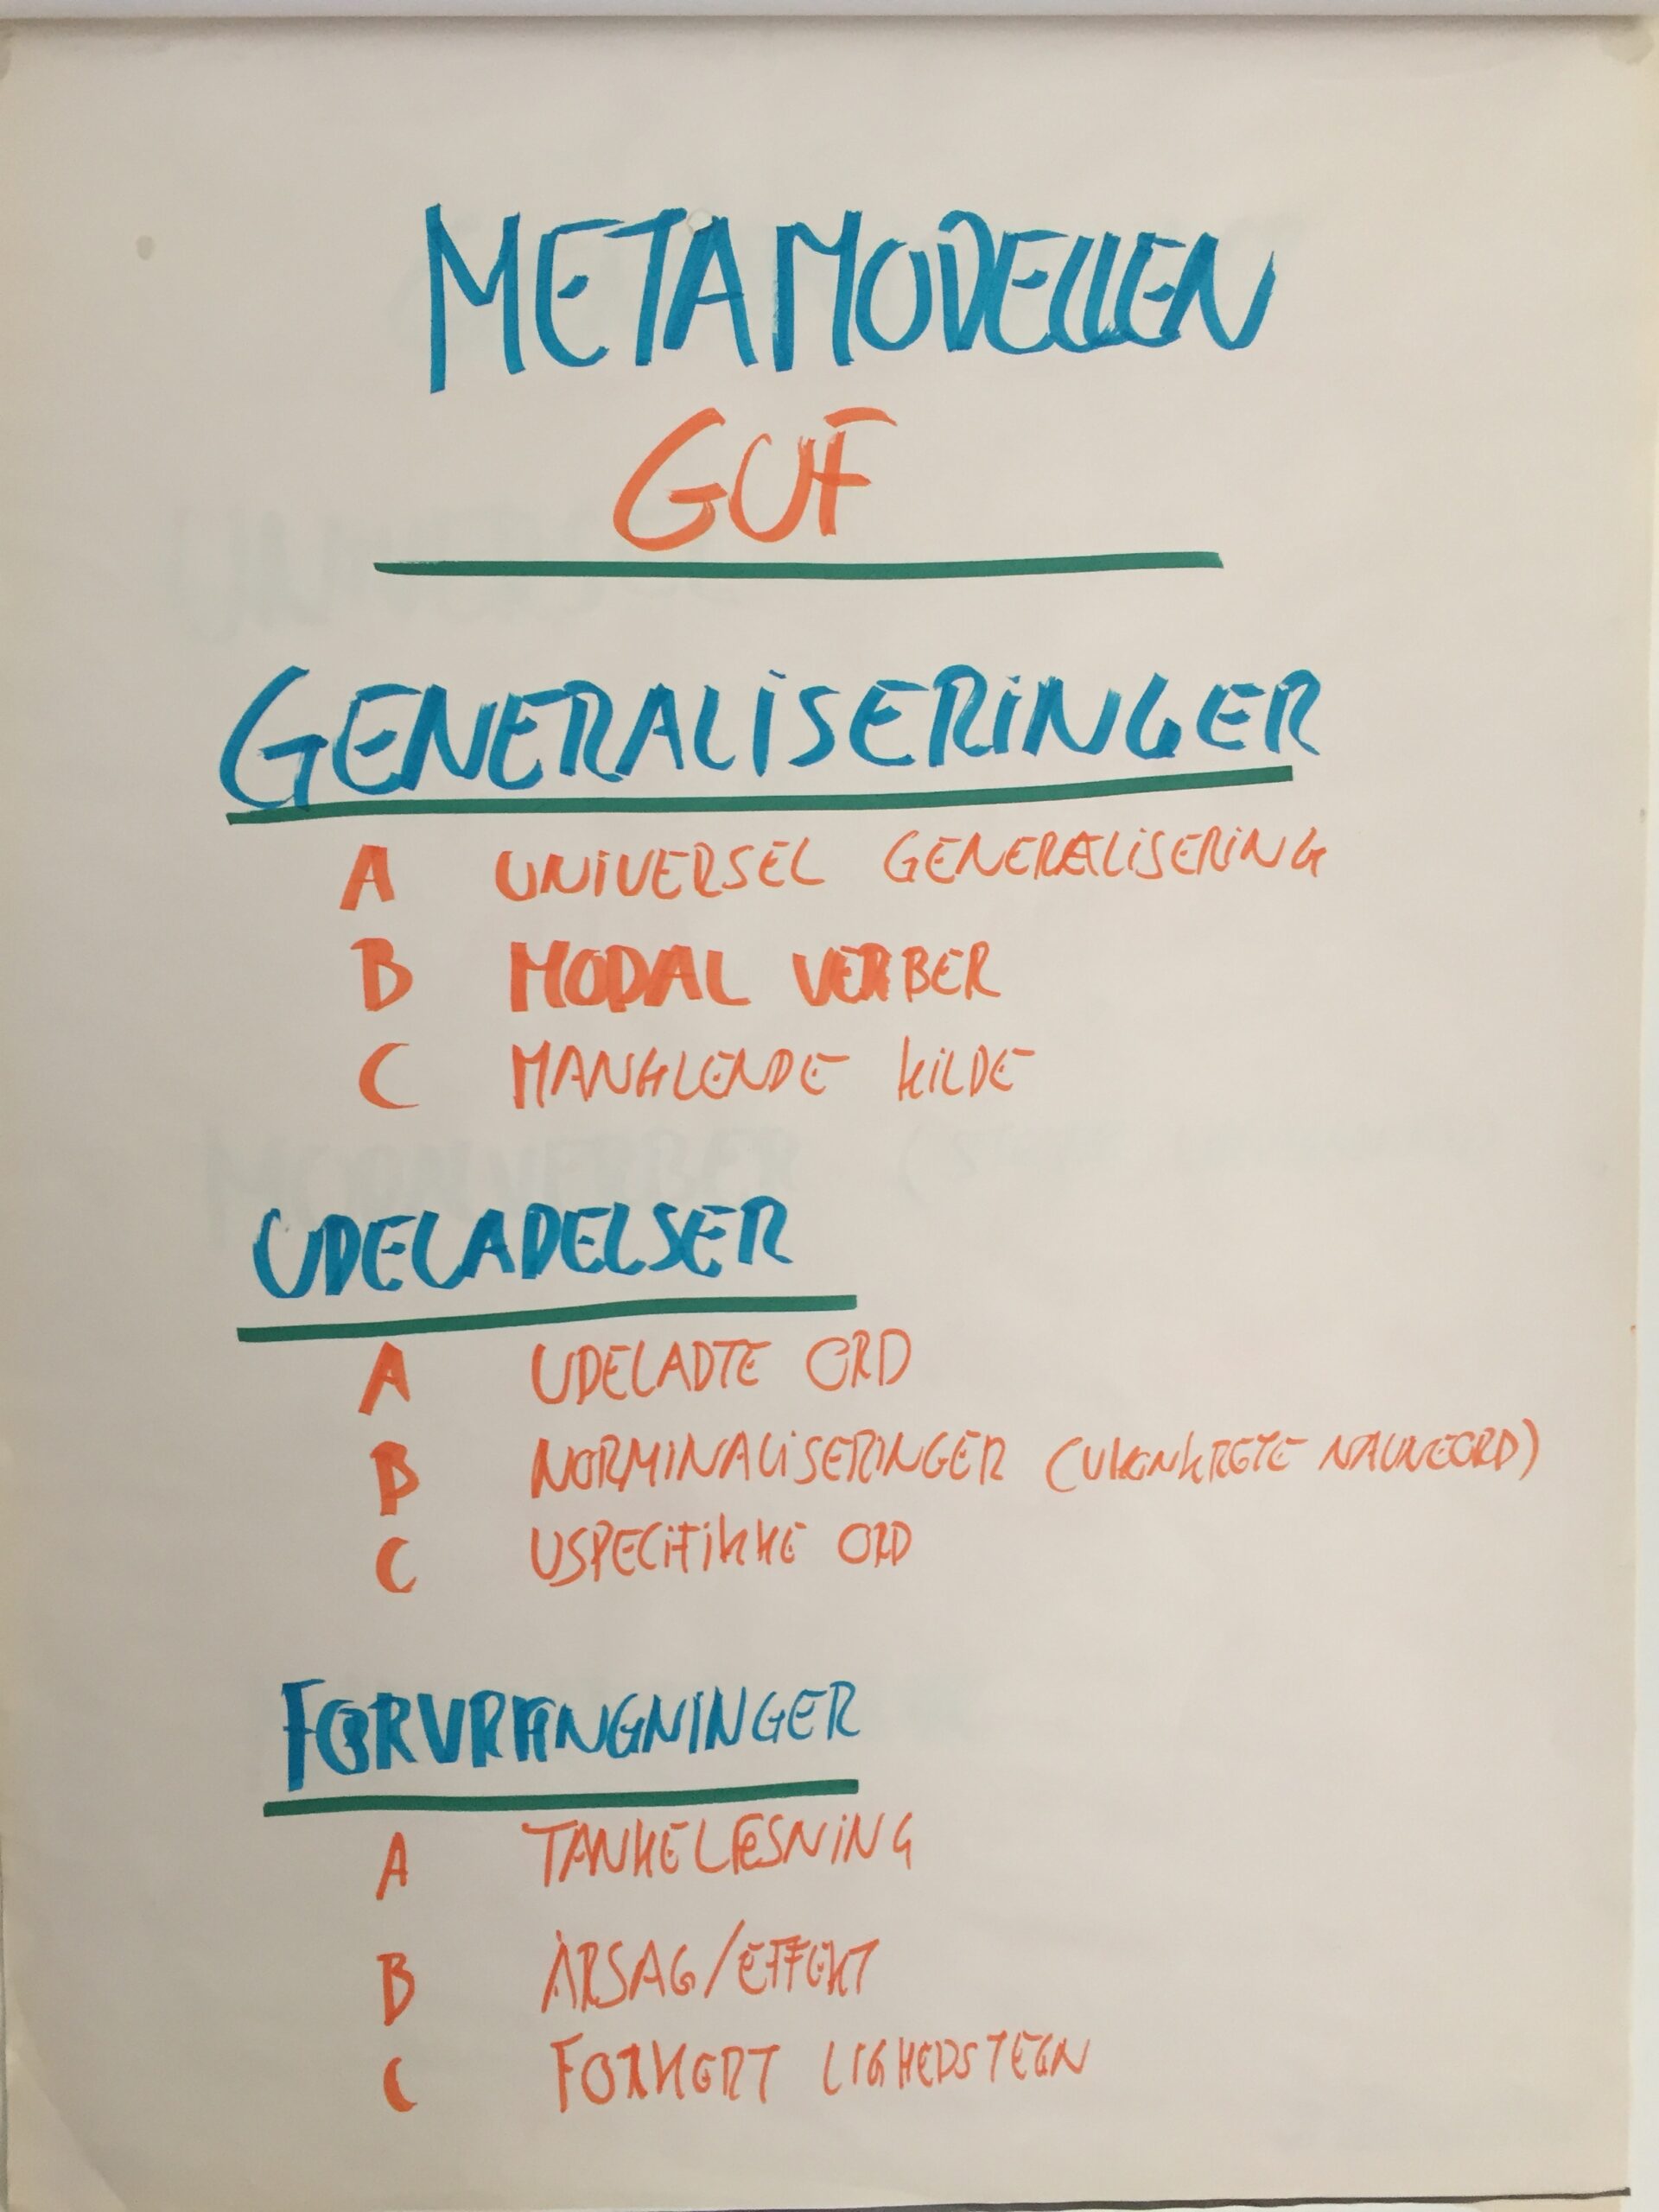 METAMODELLEN
GUF
GENERALISERINGER
A UNIVERSEL GENERALISERING
B MODAL VERBER
C MANGLENDE KILDE
UDELADELSER
A UDELADTE ORD
B NORMINALISERINGER (UKONKRETE NAVNEORD)
C USPECIFIKKE ORD
FORVRÆNGNINGER
A TANKELÆSNING
B ÅRSAG/EFFEKT
C FORKERT LIGHEDSTEGN